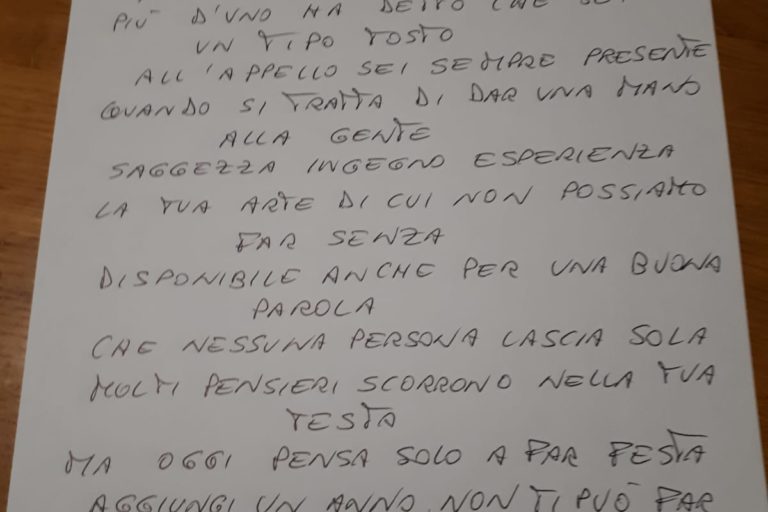 PIÙ D'UNO HA DETTO CHE SEI
UN TIPO TOSTO
ALL'APPELLO SEI SEMPRE PRESENTE
QUANDO SI TRATTA DI DAR UNA MANO
ALLA GENTE
SAGGEZZA INGEGNO ESPERIENZA
LA TUA ARTE DI CUI NON POSSIAMO
FAR SENZA
DISPONIBILE ANCHE PER UNA BUONA
PAROLA
CHE NESSUNA PERSONA LASCIA SOLA
MOLTI PENSIERI SCORRONO NELLA TUA
TESTA
MA OGGI PENSA SOLO A FAR FESTA
AGGIUNGI UN ANNO NON TI PUÒ FAR